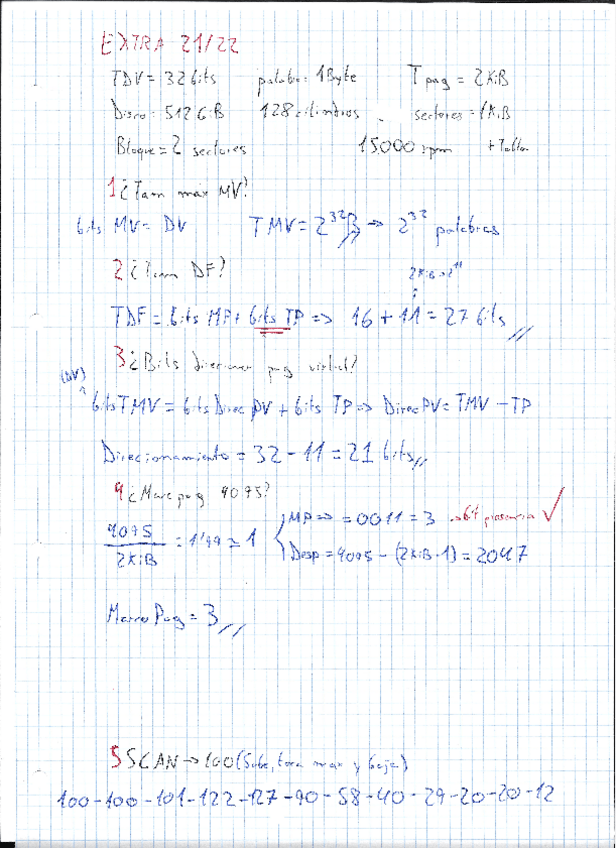 EXTRA 21/22
TDV = 32 bits palabra: 1Byte Tpag = 2KiB
Disco: 512GiB 128 cilindros sectores = 1KiB
Bloque = 2 sectores 15000 rpm + Tabla
1 ¿Tam max MV?
bits MV = DV TMV = 2^32 B => 2^32 palabras
2 ¿Tam DF? 2KiB => 2^11
TDF = bits MP + bits TP => 16 + 11 = 27 bits
3 ¿Bits direccionar pag virtual?
(DV)
bits TMV = bits Direc PV + bits TP => Direc PV = TMV - TP
Direcionamiento = 32 - 11 = 21 bits
4 ¿Marc pag 4095?
4095 / 2KiB = 1'99 ≃ 1 { MP => = 0011 = 3 → bit presencia ✓
Desp = 4095 - (2KiB · 1) = 2047
Marco Pag = 3
5 SCAN → 100 (Sube, toca max y baja)
100 - 100 - 101 - 122 - 127 - 90 - 58 - 40 - 29 - 20 - 20 - 12